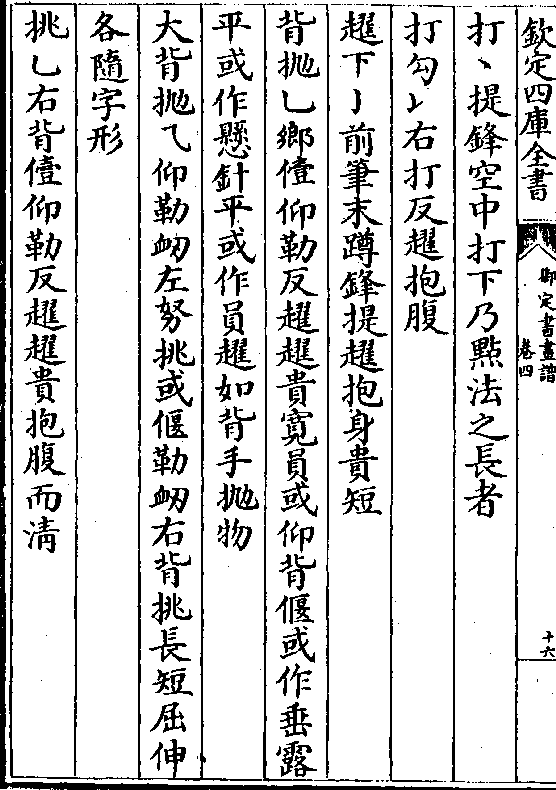 欽定四庫全書
御定書畫譜
卷四
十六
打丶提鋒空中打下乃㸃法之長者
打勾㇀右打反趯抱腹
趯下亅前筆末蹲鋒提趯抱身貴短
背抛乚鄉僼仰勒反趯趯貴寛員或仰背偃或作垂露
平或作懸針平或作員趯如背手抛物
大背抛乁仰勒衂左努挑或偃勒衂右背挑長短屈伸
各隨字形
挑乚右背僼仰勒反趯趯貴抱腹而淸